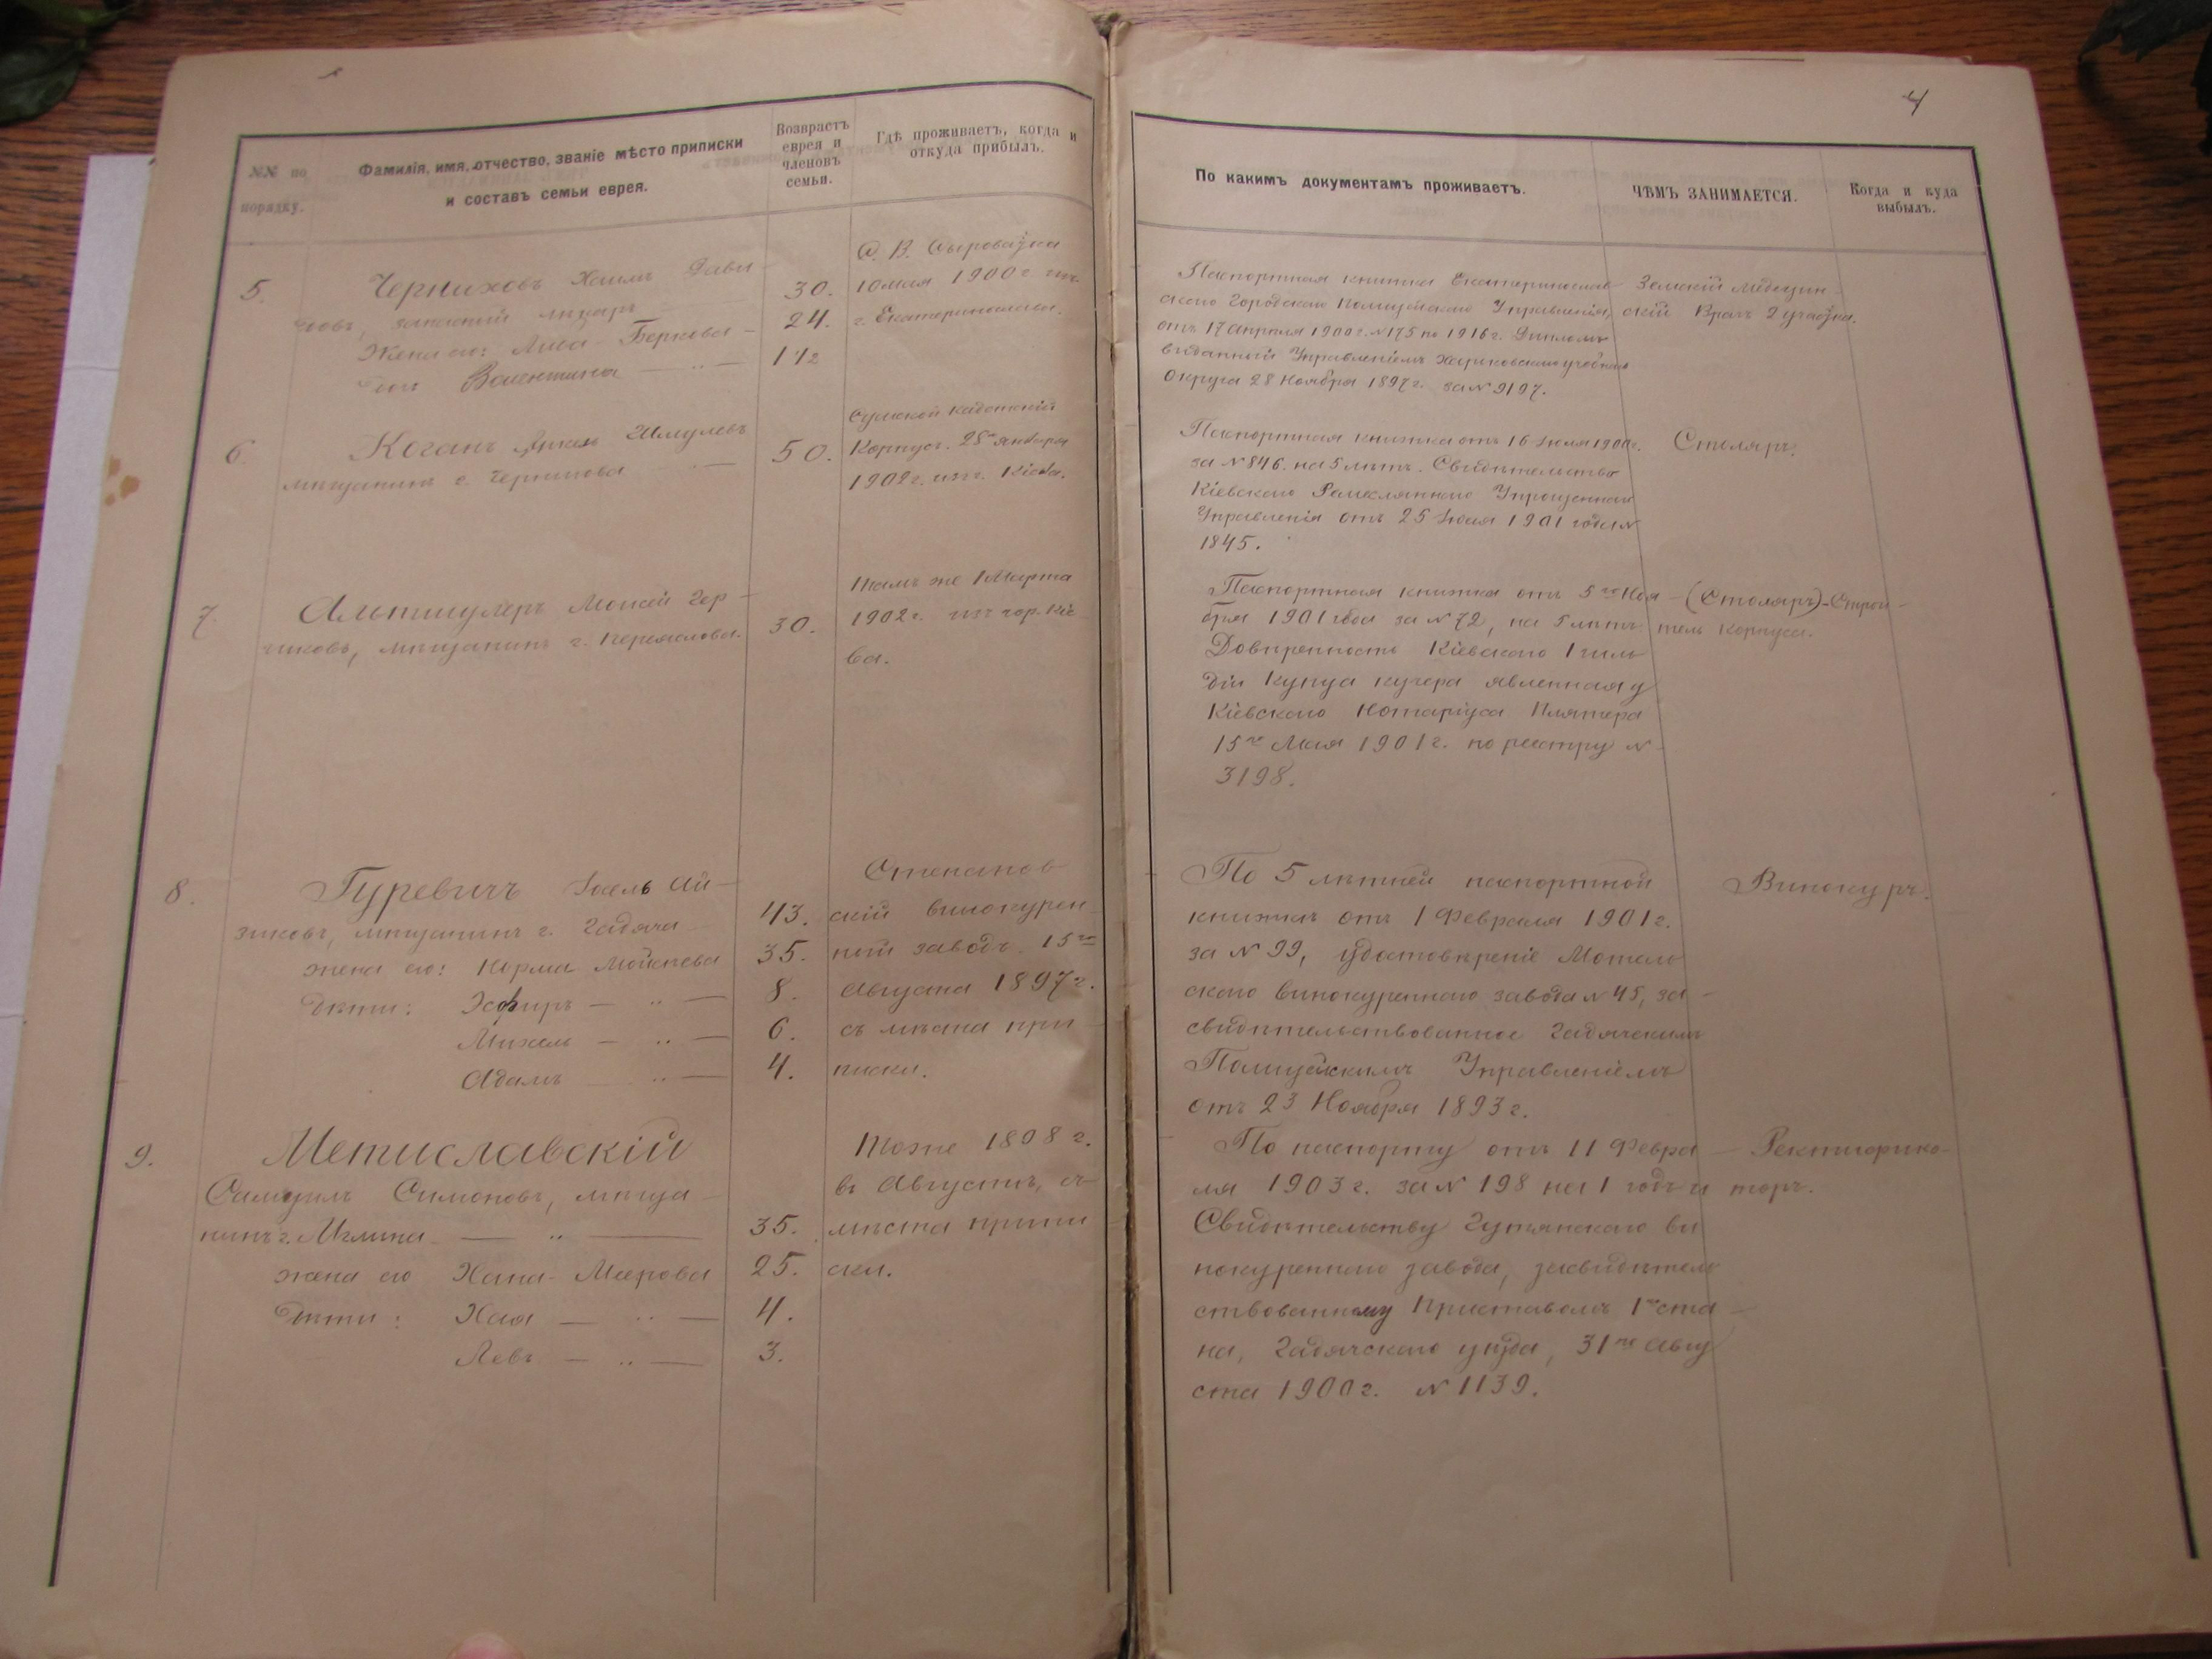 4
NN по порядку.
Фамилія, имя, отчество, званіе мѣсто приписки
и составъ семьи еврея.
Возврастъ
еврея и
членовъ
семьи.
Гдѣ проживаетъ, когда и
откуда прибылъ.
По какимъ документамъ проживаетъ.
ЧѢМЪ ЗАНИМАЕТСЯ.
Когда и куда
выбылъ.
5.
Черниховъ Хаимъ Дави-
довъ, запасный лекарь
Жена его: Либа Беркова —
дочь Валентина — „ —
30.
24.
1 1/2
С. В. Сыроватка
1900 г. изъ
г. Екатеринослава.
Паспортная книжка Екатеринослав-
скаго Городского Полицейскаго Управленія,
отъ 17 Апреля 1900 г. N 175 по 1916 г. Дипломъ
выданный Управленіемъ Харьковскаго учебнаго
Округа 28 Ноября 1897 г. за N 9197.
Земскій Медицин-
скій Врачъ 2 участка.
6.
Коганъ Шмулевъ
мѣщанинъ г. Чернигова —
50.
Сумской кадетскій
Корпусъ. 25го января
1902 г. изъ г. Кіева.
Паспортная книжка отъ 16 Іюля 1900 г.
за N 846. на 5 лѣтъ. Свидѣтельство
Кіевскаго Ремесленнаго Упрощеннаго
Управленія отъ 25 Іюля 1901 года N
1845.
Столяръ.
7.
Альтшулеръ Моисей Гер-
шковъ, мѣщанинъ г. Переяслова.
30.
Тамъ же 1 Марта
1902 г. изъ гор. Кіе-
ва.
Паспортная книжка отъ 5го Ноя-
бря 1901 года за N 72, на 5 лѣтъ.
Довѣренность Кіевскаго 1 гиль-
діи Купца кучера явленная у
Кіевскаго Нотаріуса Плятера
15го Мая 1901 г. по реестру N
3198.
(Столяръ) - Строи-
тель корпуса.
8.
Гуревичъ Іосель Ай-
зиковъ, мѣщанинъ г. Гадяча
жена его: Норма Мойсеева
дѣти: Эсфирь — „ —
Михель — „ —
Адамъ — „ —
43.
35.
8.
6.
4.
Степанов-
скій винокурен-
ный заводъ. 15го
Августа 1897 г.
съ мѣста при-
писки.
По 5 лѣтней паспортной
книжкѣ отъ 1 Февраля 1901 г.
за N 99, удостовѣреніе Мотель-
скаго винокуреннаго завода N 45, за-
свидѣтельствованное Гадячскимъ
Полицейскимъ Управленіемъ
отъ 23 Ноября 1893 г.
Винокуръ.
9.
Метиславскій
Самуилъ Симоновъ, мѣща-
нинъ г. Мглина — „ —
жена его Хана - Меерова
дѣти: Хая — „ —
Левъ — „ —
35.
25.
4.
3.
Тоже 1898 г.
въ Августѣ, съ
мѣста припи-
ски.
По паспорту отъ 11 Февра-
ля 1903 г. за N 198 на 1 годъ и
Свидѣтельству Гутянскаго ви-
нокуреннаго завода, засвидѣтель-
ствованному Приставомъ 1го ста-
на, Гадячскаго уѣзда, 31го Авгу-
ста 1900 г. N 1139.
Ректифика-
торъ.